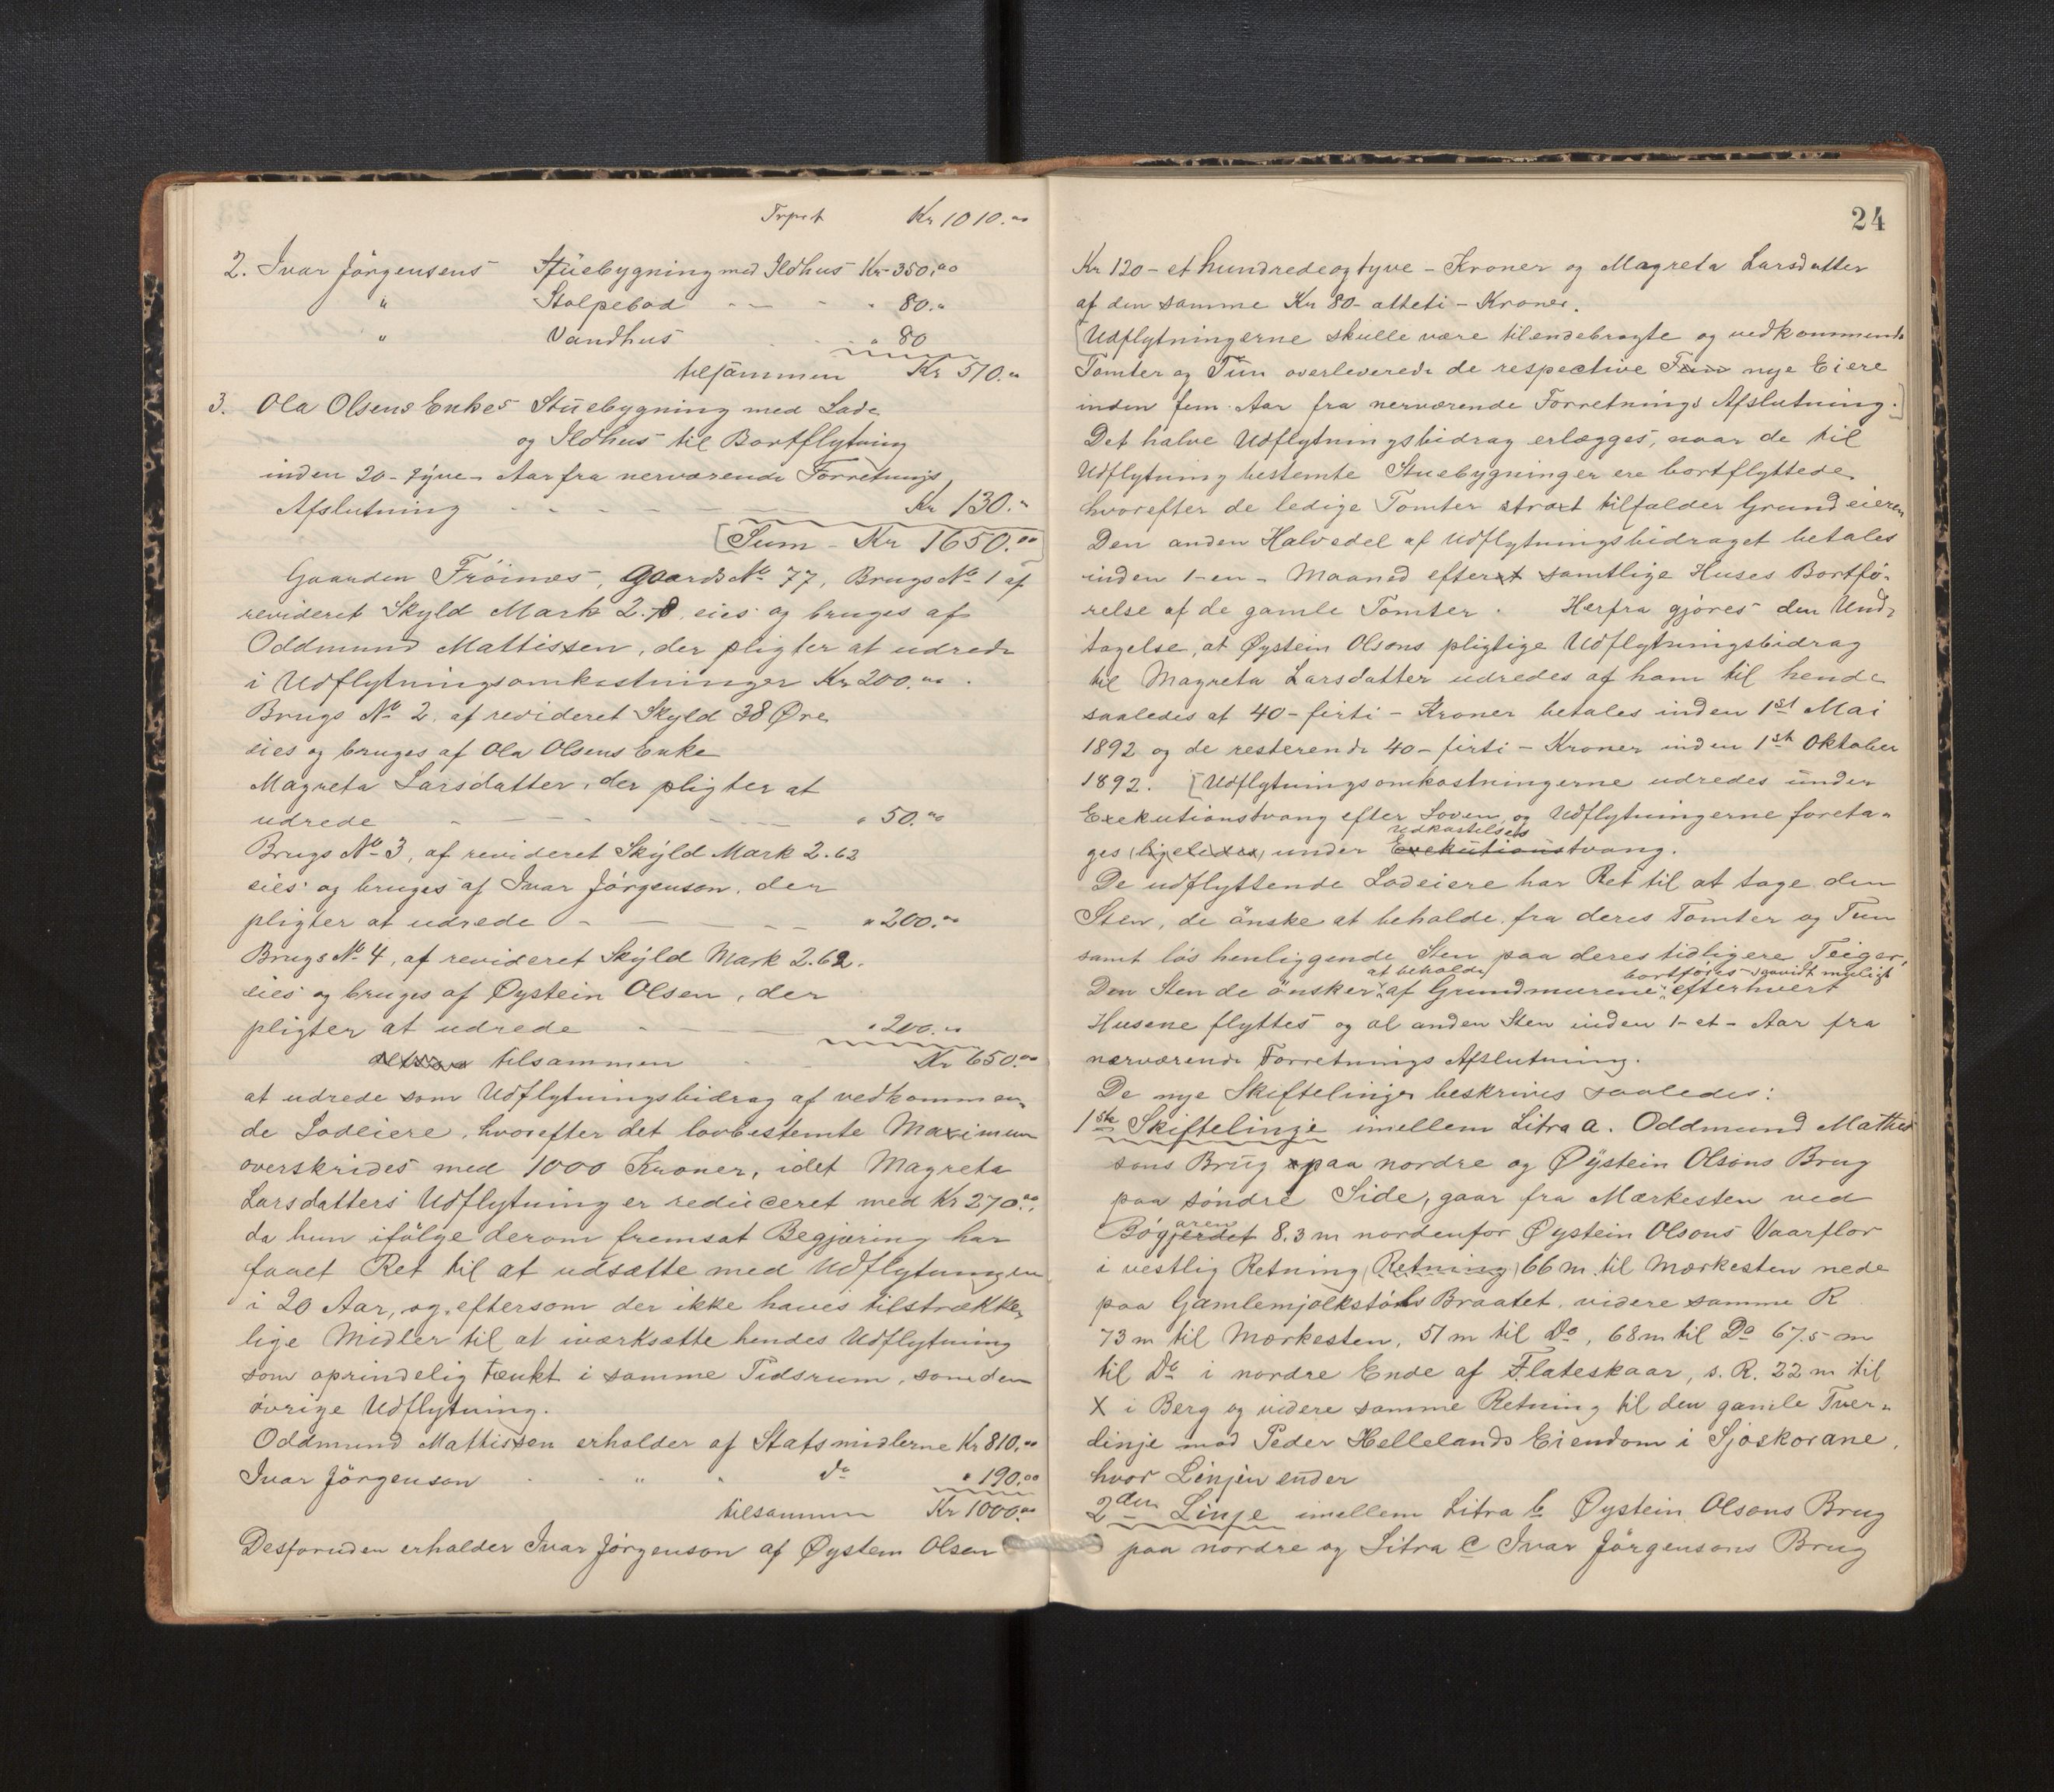 Trpst Kr 1010.00
2. Ivar Jörgensens Stuebygning med Ildhus Kr 350.00
" Stolpebod - - - " 80."
" Vandhus " 80
tilsammen Kr 510."
3. Ola Olsens Enkes Stuebygning med Lade
og Ildhus til Bortflytning
inden 20 - tyve - Aar fra nerværende Forretnings
Afslutning - - - - Kr 130."
Sum - Kr 1650.00
Gaarden Fröines, Gaards No 77, Brugs No 1 af
revideret Skyld Mark 2.78, eies og bruges af
Oddmund Mattissen, der pligter at udrede
i Udflytningsomkostninger Kr 200.00.
Brugs No 2, af revideret Skyld 38 Øre
eies og bruges af Ola Olsens Enke
Magreta Larsdatter, der pligter at
udrede - - - - " 50.00
Brugs No 3, af revideret Skyld Mark 2.62
eies og bruges af Ivar Jörgenson, der
pligter at udrede - - - - " 200.00
Brugs No 4, af revideret Skyld Mark 2.62.
eies og bruges af Øystein Olsen, der
pligter at udrede - - - " 200.00
tilsammen Kr 650.00
at udrede som Udflytningsbidrag af vedkommen-
de Lodeiere, hvorefter det lovbestemte Maximum
overskrides med 1000 Kroner, idet Magreta
Larsdatters Udflytning er reduceret med Kr 270.00,
da hun ifölge derom fremsat Begjæring har
faaet Ret til at udsætte med Udflytningen
i 20 Aar, og eftersom der ikke haves tilstrække-
lige Midler til at iværksætte hendes Udflytning
som oprindelig tænkt i samme Tidsrum, som den
övrige Udflytning.
Oddmund Mattissen erholder af Statsmidlerne Kr 810.00
Ivar Jörgenson - - " " do " 190.00
tilsammen Kr 1000.00
Desforuden erholder Ivar Jörgenson af Øystein Olsen
24
Kr 120 - et hundredeogtyve - Kroner og Magreta Larsdatter
af den samme Kr 80 - otteti - Kroner.
[Udflytningerne skulle være tilendebragte og vedkommende
Tomter og Tun overleverede de respective Tun nye Eiere
inden fem Aar fra nerværende Forretnings Afslutning.]
Det halve Udflytningsbidrag erlægges, naar de til
Udflytning bestemte Stuebygninger ere bortflyttede
hvorefter de ledige Tomter strax tilfalder Grundeieren
Den anden Halvedel af Udflytningsbidraget betales
inden 1 - en - Maaned efter at samtlige Huses Bortfö-
relse af de gamle Tomter. Herfra gjöres den Und-
tagelse, at Øystein Olsons pligtige Udflytningsbidrag
til Magreta Larsdatter udredes af ham til hende
saaledes at 40 - firti - Kroner betales inden 1st Mai
1892 og de resterende 40 - firti - Kroner inden 1st Oktober
1892. [Udflytningsomkostningerne udredes under
Exekutionstvang efter Loven, og Udflytningerne foreta-
udkastelses
ges (ligeledes) under Exekutionstvang.
De udflyttende Lodeiere har Ret til at tage den
Sten, de önske at beholde fra deres Tomter og Tun
samt lös henliggende Sten paa deres tidligere Teiger.
at beholde bortföres saavidt mueligt
Den Sten de önsker af Grundmurene efterhvert
Husene flyttes og al anden Sten inden 1 - et - Aar fra
nærværende Forretnings Afslutning.
De nye Skiftelinjer beskrives saaledes:
1ste Skiftelinje imellem Litra a. Oddmund Mathis
sons Brug paa nordre og Øystein Olsons Brug
paa söndre Side, gaar fra Mærkesten ved
aren
Bögjerdet 8.3 m nordenfor Øystein Olsons Vaarflor
i vestlig Retning (Retning) 66 m til Mærkesten nede
paa Gamlemjölkstöls Braatet, videre samme R
73 m til Mærkesten, 51 m til Do, 68 m til Do 67.5 m
til Do i nordre Ende af Flateskaar, s. R. 22 m til
X i Berg og videre samme Retning til den gamle Tver-
linje mod Peder Hellelands Eiendom i Sjöskorane,
hvor Linjen ender
2den Linje imellem Litra b Øystein Olsons Brug
paa nordre og Litra c Ivar Jörgensons Brug